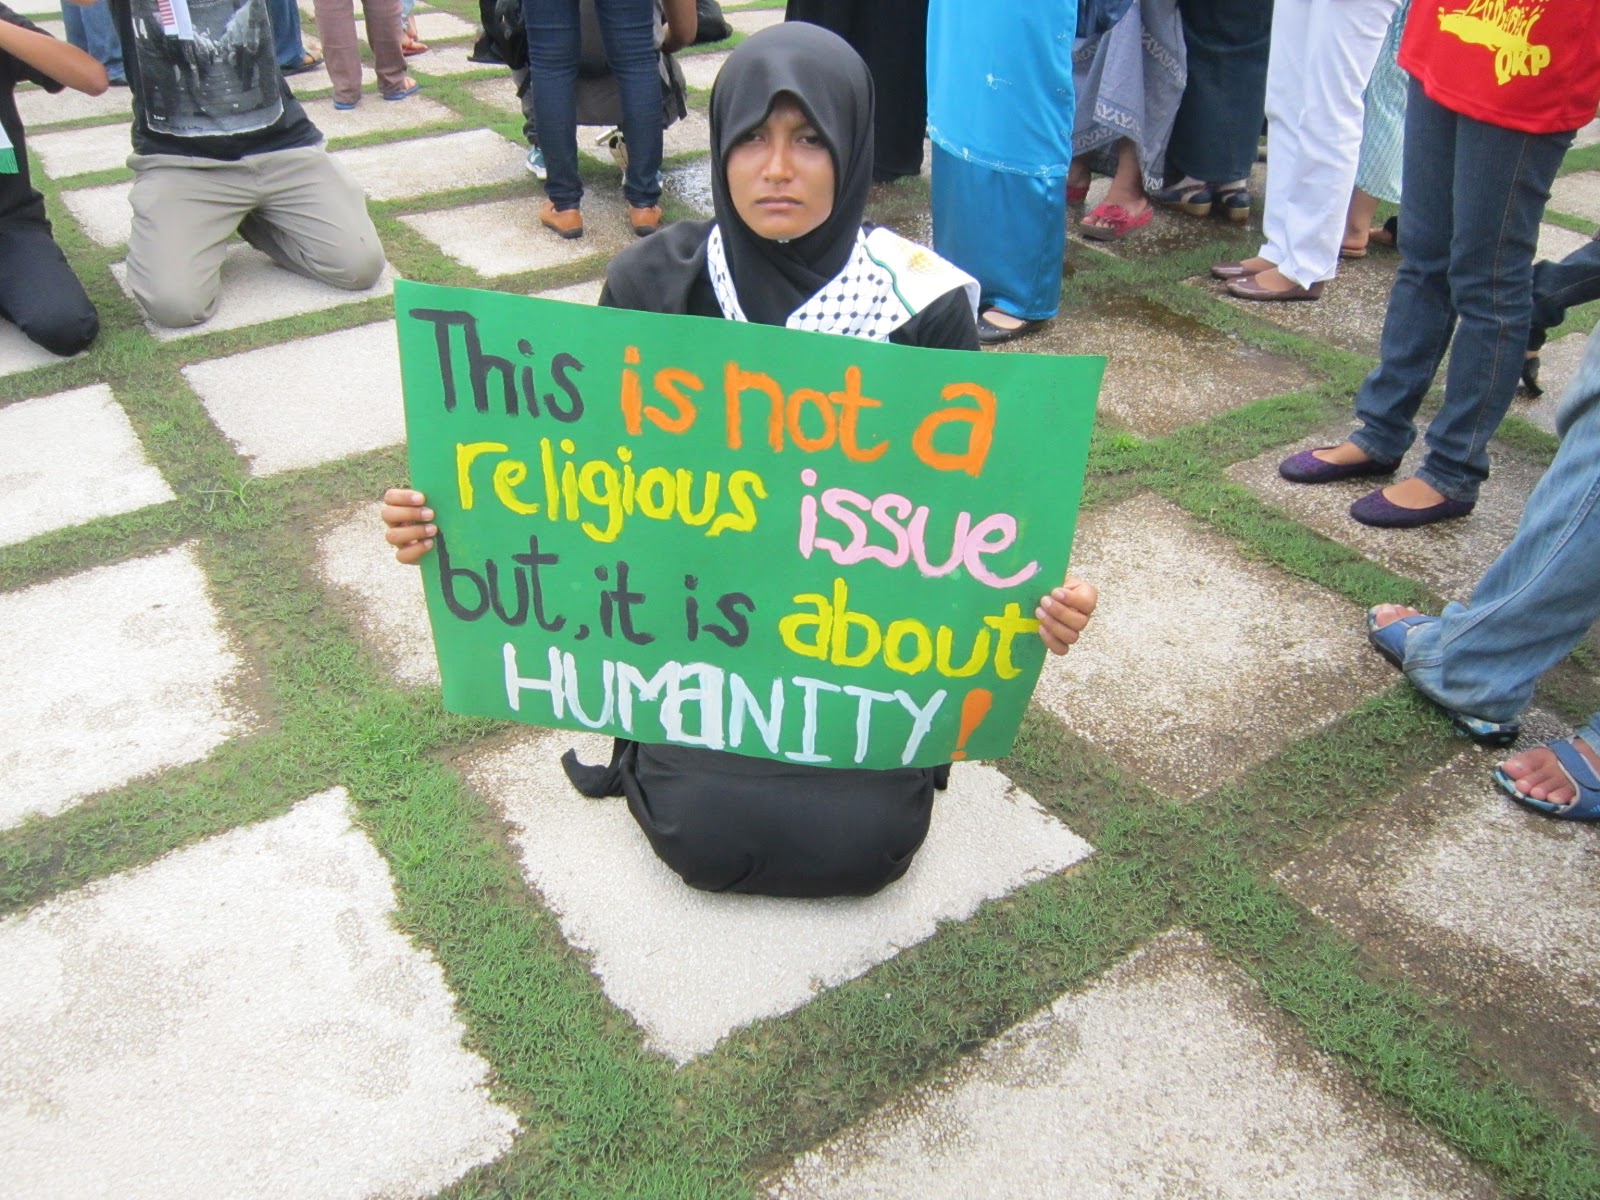 This is not a
religious issue
but, it is about
HUMANITY!
QKP